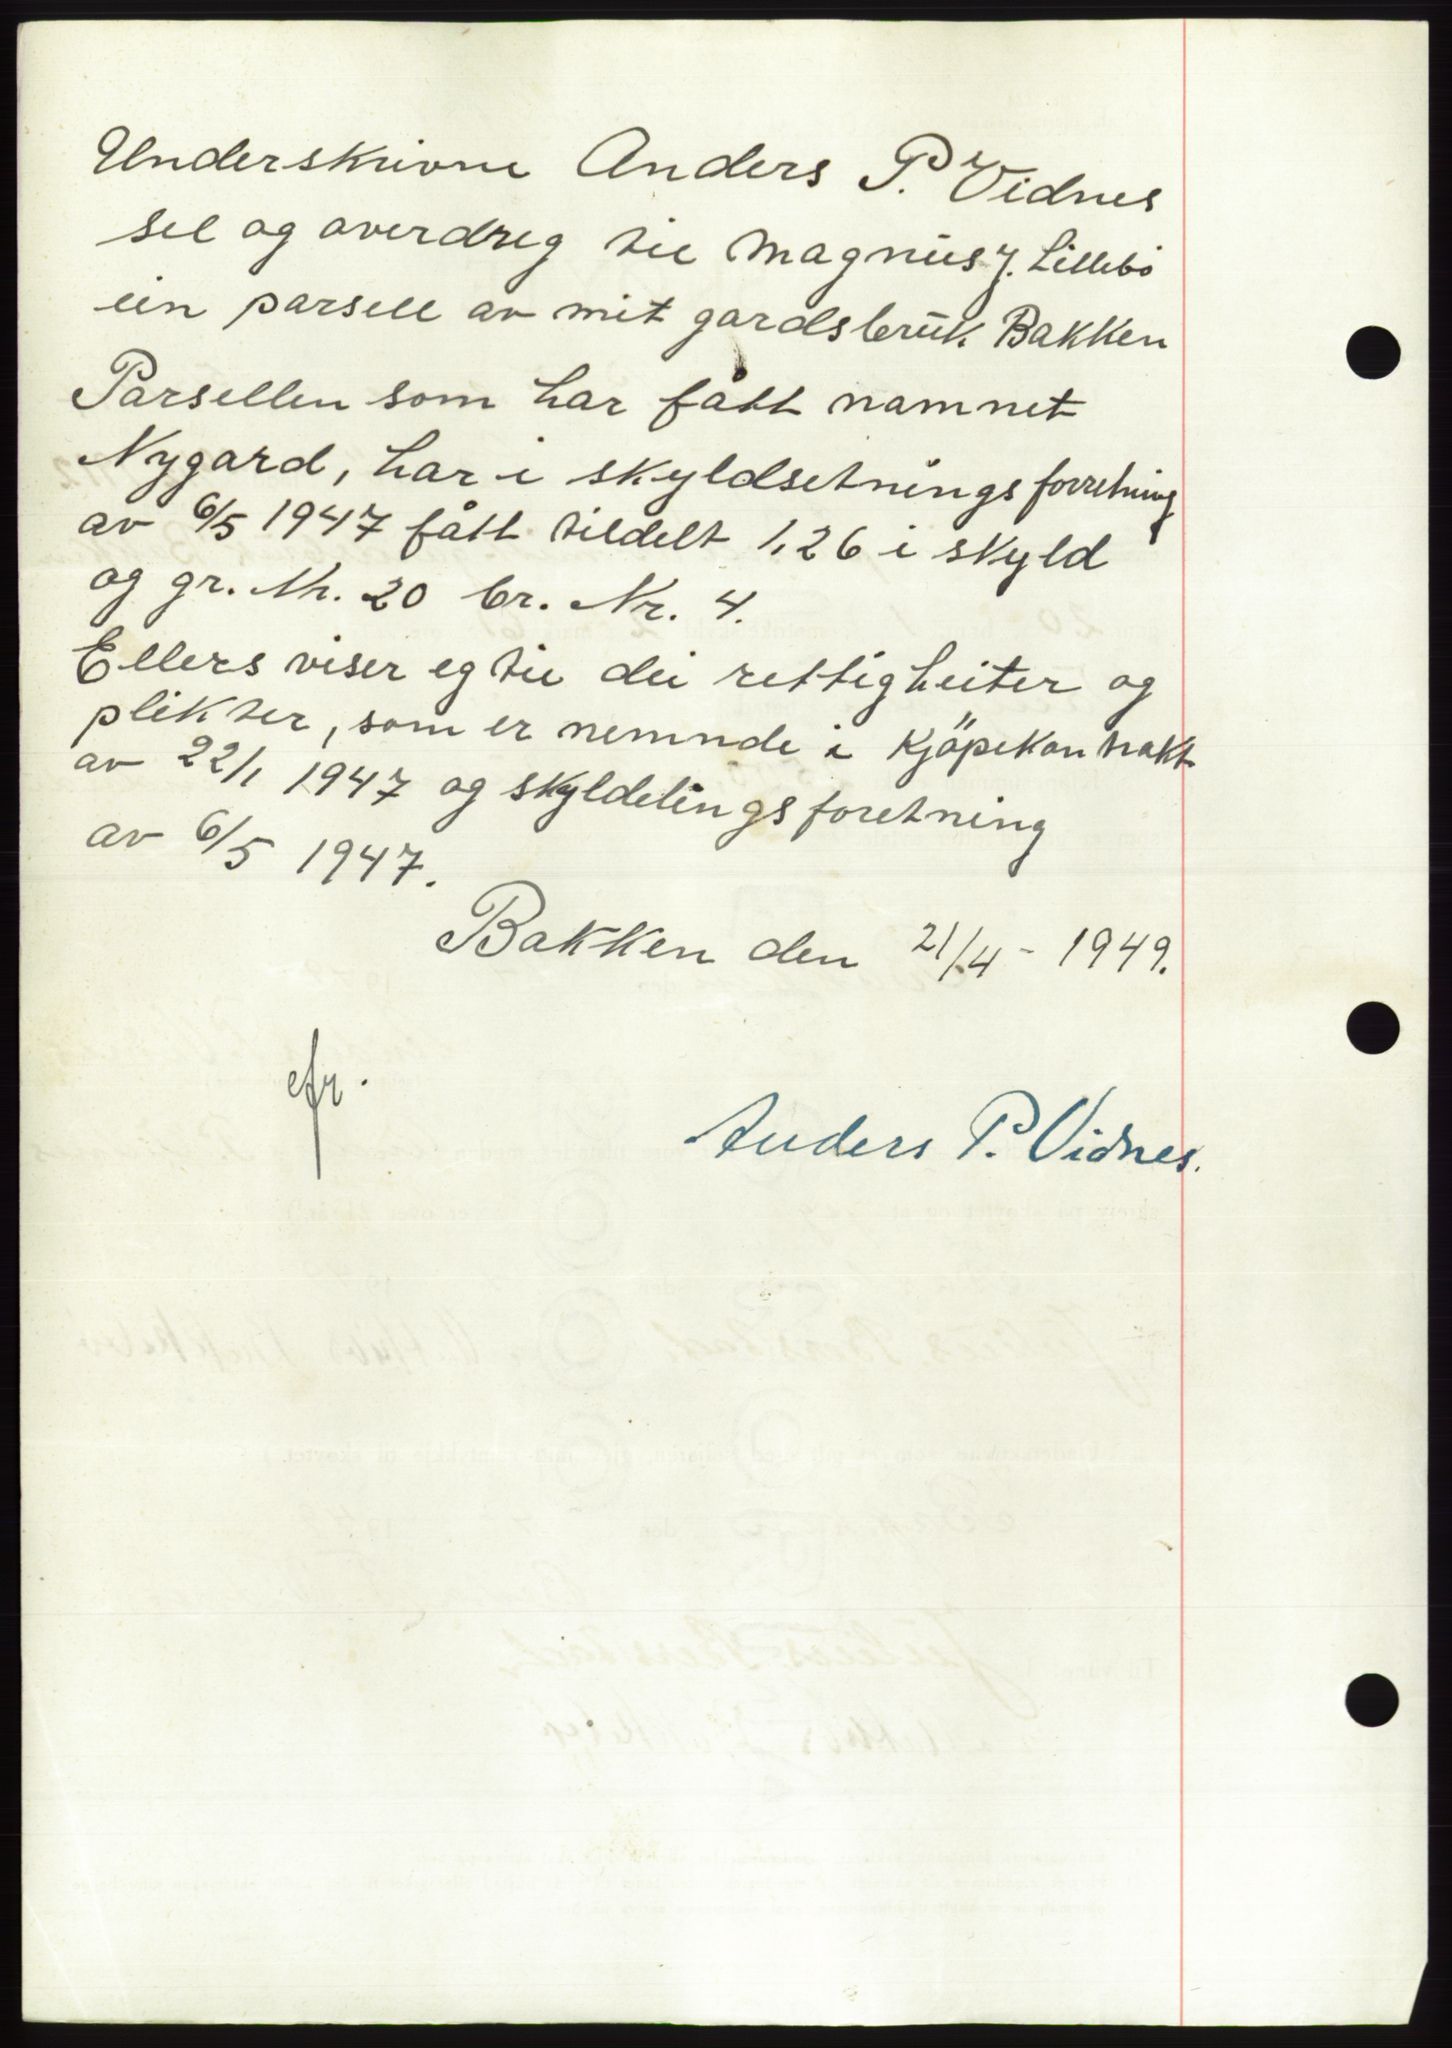 Underskrivne Anders P. Vidnes
sel og averdreg til Magnus J. Lillebö
ein parsell av mit gardsbruk Bakken
Parsellen som har fått namnet
Nygard, har i skyldsetningsforretning
av 6/5 1947 fått tildelt 1,26 i skyld
og gr. Nr. 20 br. Nr. 4.
Ellers viser eg til dei rettigheiter og
plikter, som er nemnde i Kjöpekontrakt
av 22/1 1947 og skyldelingsforetning
av 6/5 1947.
Bakken den 21/4 - 1949.
Anders P. Vidnes.